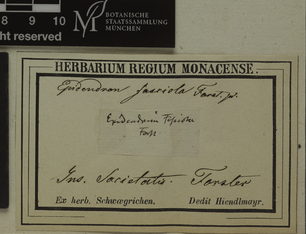 8 9 10
ht reserved
BOTANISCHE
STAATSSAMMLUNG
MÜNCHEN
HERBARIUM REGIUM MONACENSE.
Epidendron fasciola Forst.
Epidendrum
Forst
Ins. Societatis. Forster
Ex herb. Schwægrichen. Dedit Hiendlmayr.